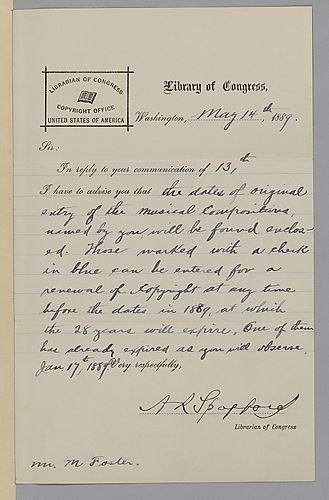 LIBRARIAN OF CONGRESS
COPYRIGHT OFFICE
UNITED STATES OF AMERICA
Library of Congress,
Washington, May 14th, 1889.
Sir:
In reply to your communication of 13th
I have to advise you that the dates of original
entry of the Musical Compositions
named by you will be found enclos-
ed. Those marked with a check
in blue can be entered for a
renewal of Copyright at any time
before the dates in 1889, at which
the 28 years will expire. One of them
has already expired as you will observe,
Jan 17th 1889. Very respectfully,
A R Spofford
Librarian of Congress
M Foster.